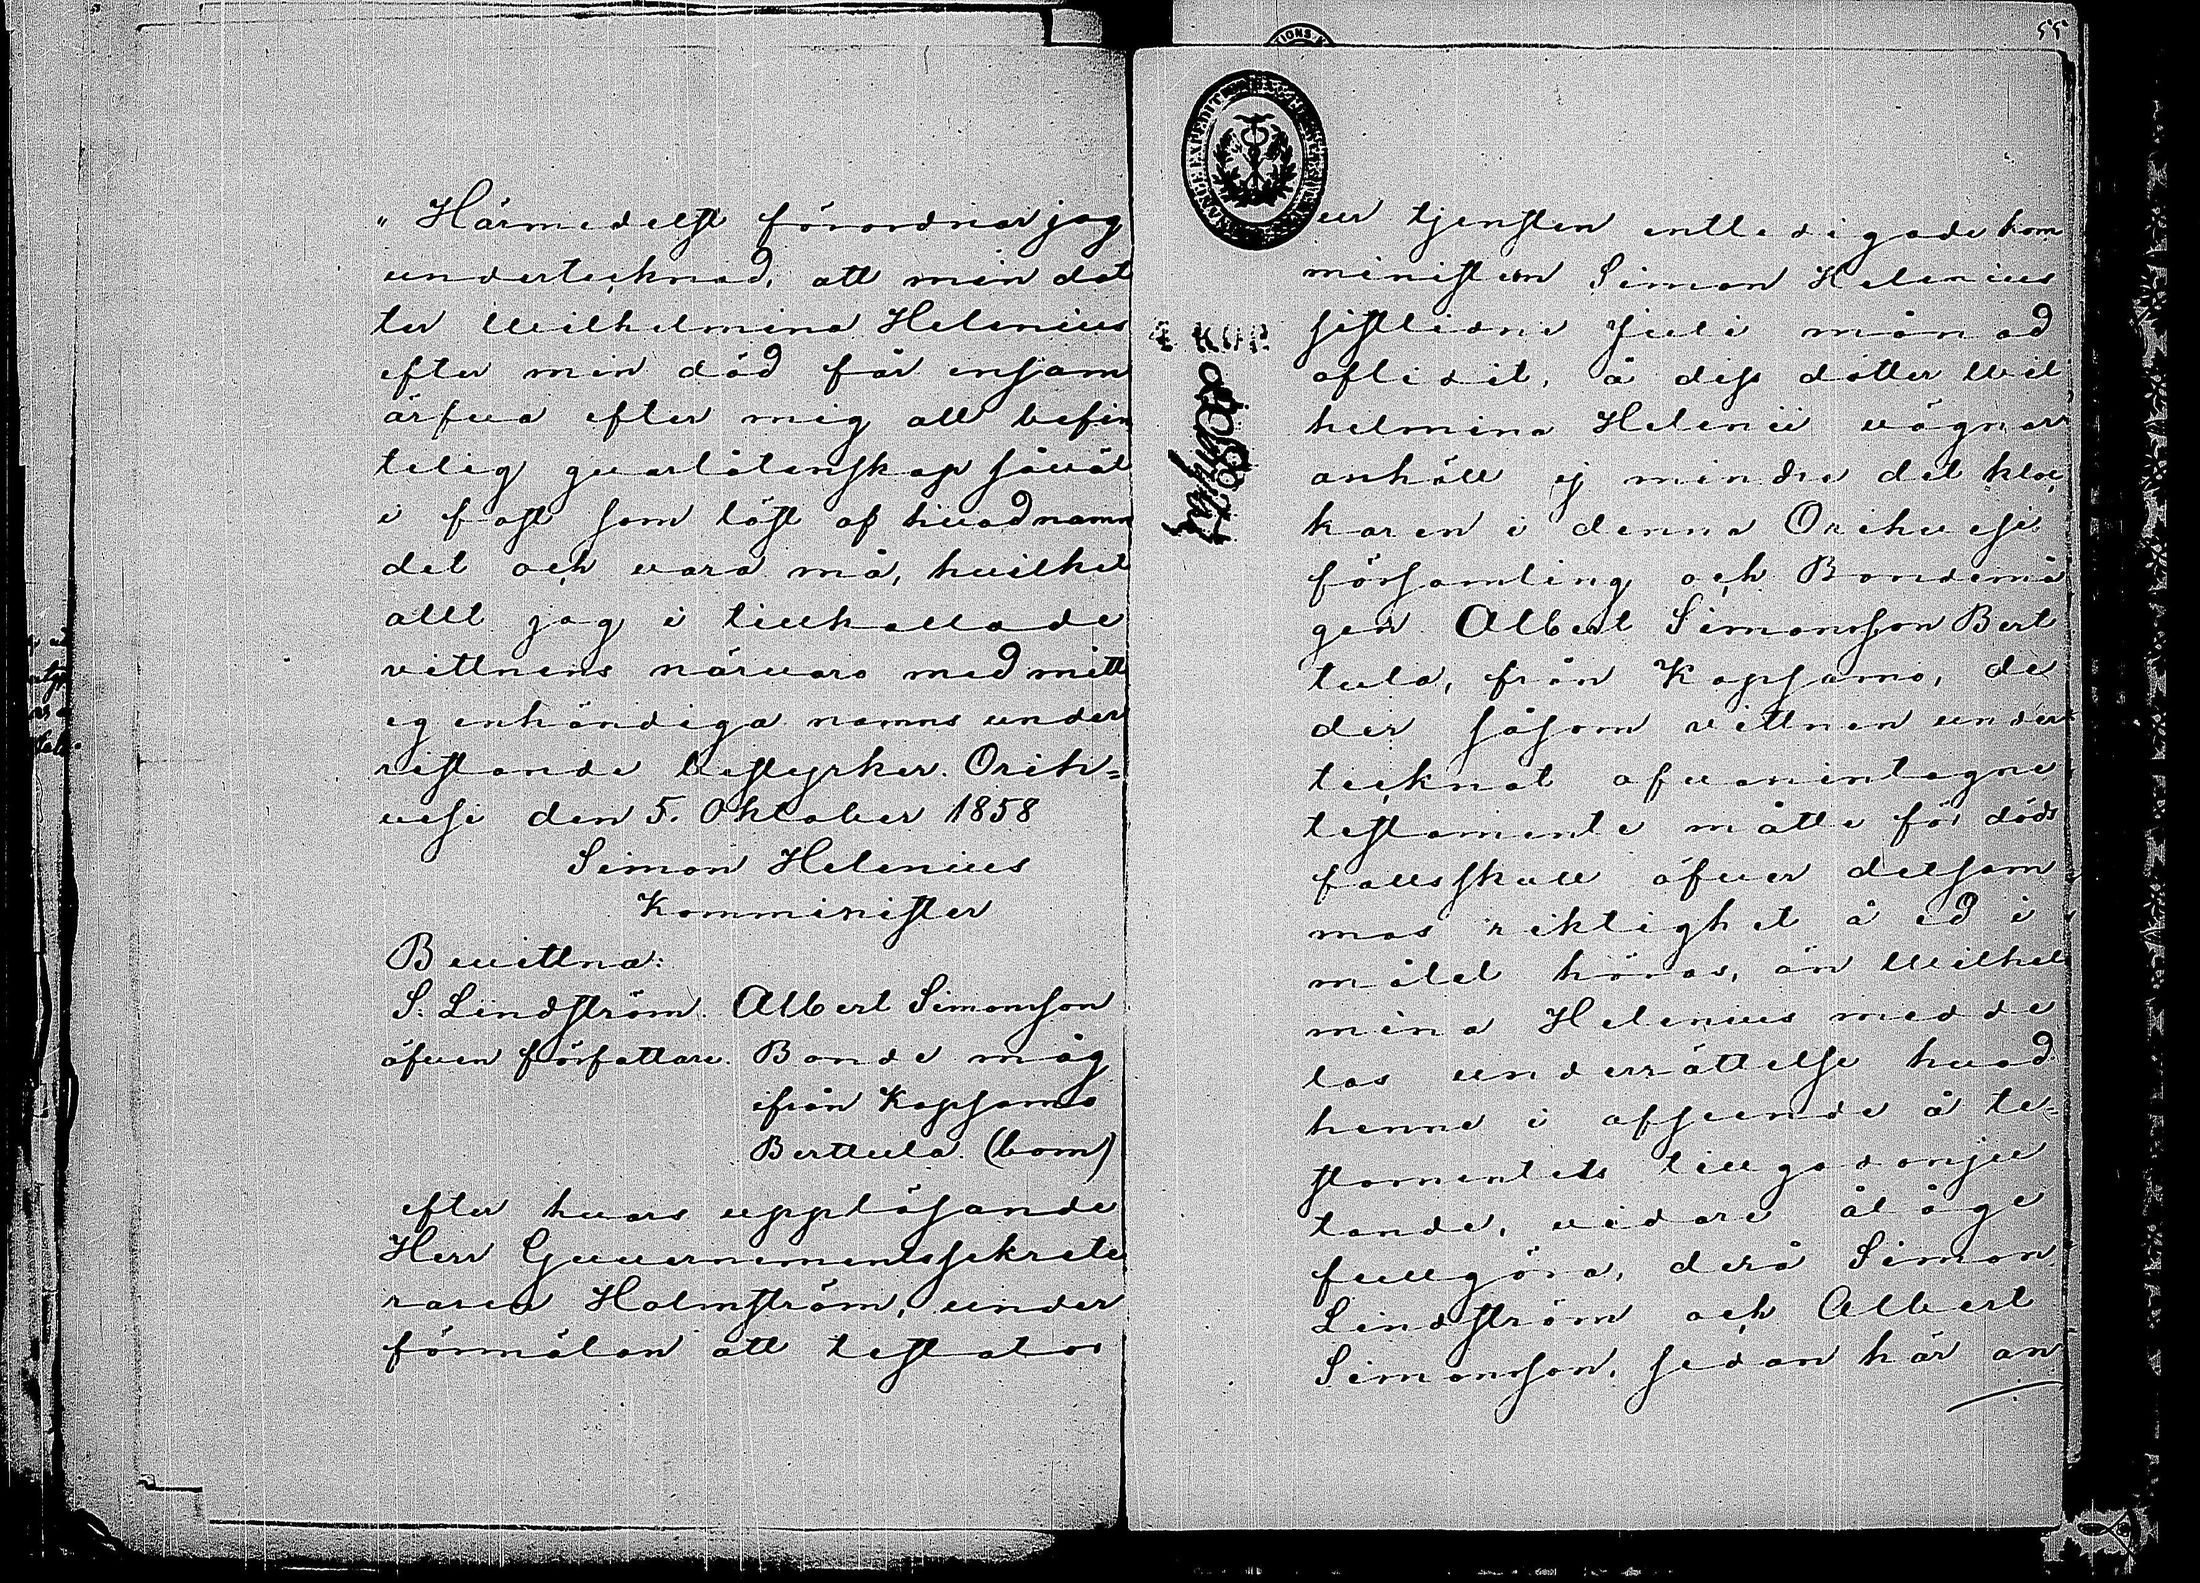 „Härmedelst förordnar jag
undertecknad, att min dot
ter Wilhelmina Helenius
efter min död får ensam
ärfva efter mig all befin
telig qvarlåtenskap såväl
i fast som löst af hvad namn
det och vara må, hvilket
allt jag i tillkallade
vittnens närvaro med mitt
egenhändiga namns under
ristande bestyrker. Orih=
vesi den 5. Oktober 1858
Simon Helenius
Komminister
Bevittna:
S. Lindström. Albert Simonsson
äfven författare. Bonde måg
ifrån Kapsamo
Berttula (bom)
efter hvars uppläsande
Herr Guvernementssekrete
raren Holmström, under
förmälan att testator
55
ur tjensten entledigade kom
ministern Simon Helenius
sistlidne Juli månad
aflidit, å dess dotter Wil
helmina Helenii vägnar
anhöll ej mindre det kloc
karen i denna Orihvesi
församling och Bondemå
gen Albert Simonsson Bert
tula, från Kapsamo, de
der såsom vittnen under
tecknat ofvanintagne
testamente måtte för döds
fallsskull öfver detsam
mas riktighet å ed i
målet höras, än Wilhel
mina Helenius medde
las underrättelse hvad
henne i afseende å te=
stamentets tillgodonju
tande, vidare ålåge
fullgöra, derå Simon
Lindström och Albert
Simonsson, sedan här an
4 KOP.